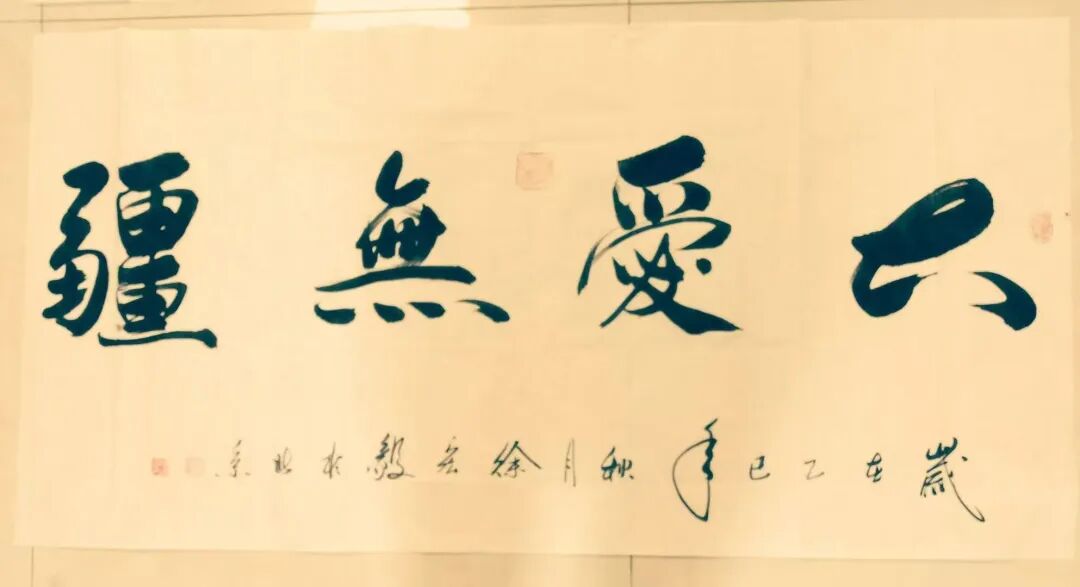 大愛無疆
歲在乙巳年秋月徐宏毅於北京